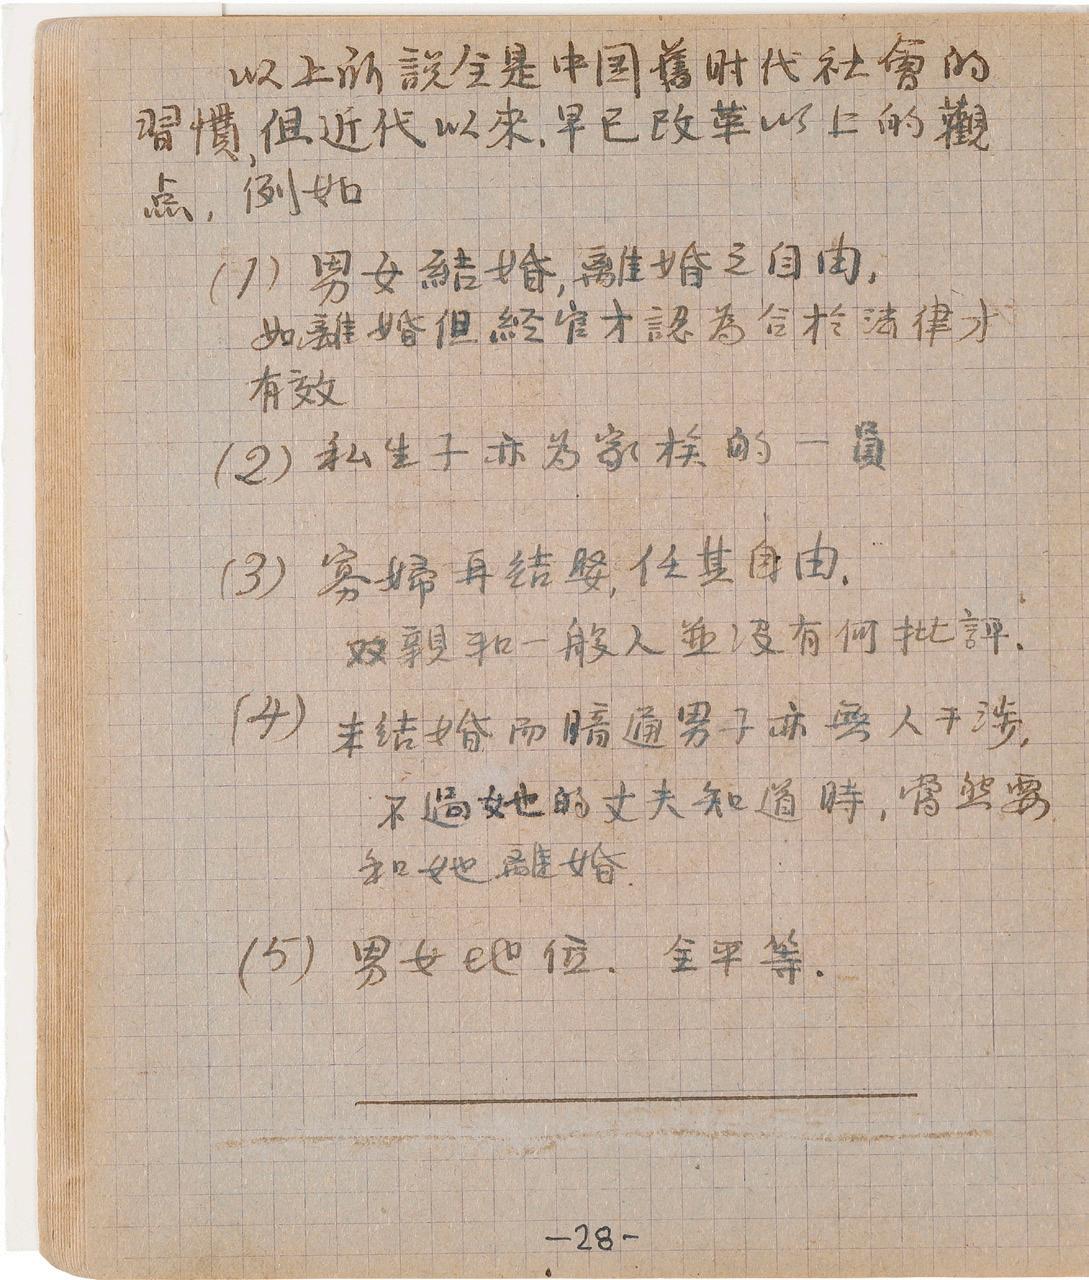 以上所說全是中国舊时代社會的
習慣,但近代以來,早已改革以上的觀
点,例如
(1)男女結婚,離婚之自由,
如離婚但經官才認為合於法律才
有效
(2)私生子亦为家族的一員
(3)寡婦再结娶,任其自由.
双親和一般人並没有何批評.
(4)未结婚而暗通男子亦無人干涉,
不過她的丈夫知道時,當然要
和她離婚.
(5)男女地位.全平等.
-28-